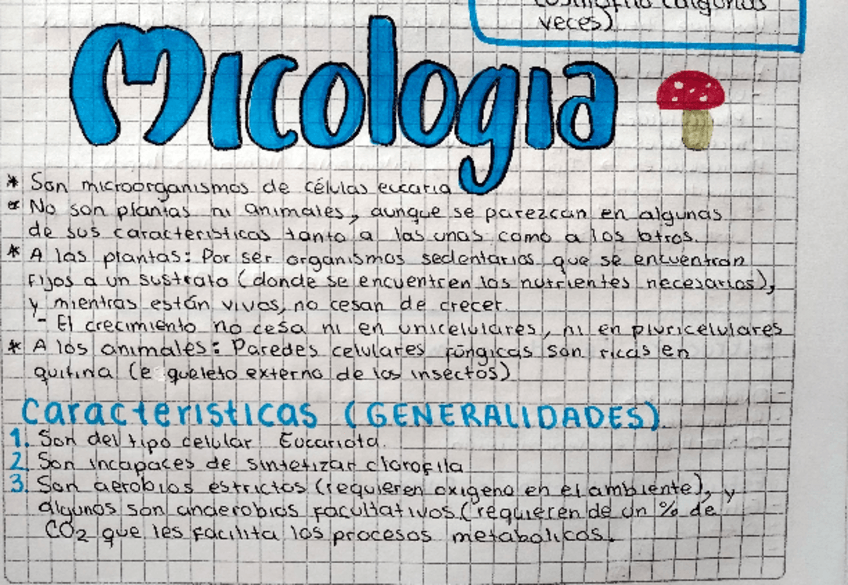 veces)
Micologia
* Son microorganismos de células eucaria
* No son plantas ni animales, aunque se parezcan en algunas
de sus características tanto a las unas como a los otros.
* A las plantas: Por ser organismos sedentarios que se encuentran
fijos a un sustrato (donde se encuentren los nutrientes necesarios),
y mientras están vivos, no cesan de crecer.
- El crecimiento no cesa ni en unicelulares, ni en pluricelulares
* A los animales: Paredes celulares fúngicas son ricas en
quitina (e queleto externo de los insectos)
Características (GENERALIDADES)
1. Son del tipo celular Eucariota.
2. Son incapaces de sintetizar clorofila
3. Son aerobios estrictos (requieren oxigeno en el ambiente), y
algunos son anaerobios facultativos (requieren de un % de
CO2 que les facilita los procesos metabolicos.